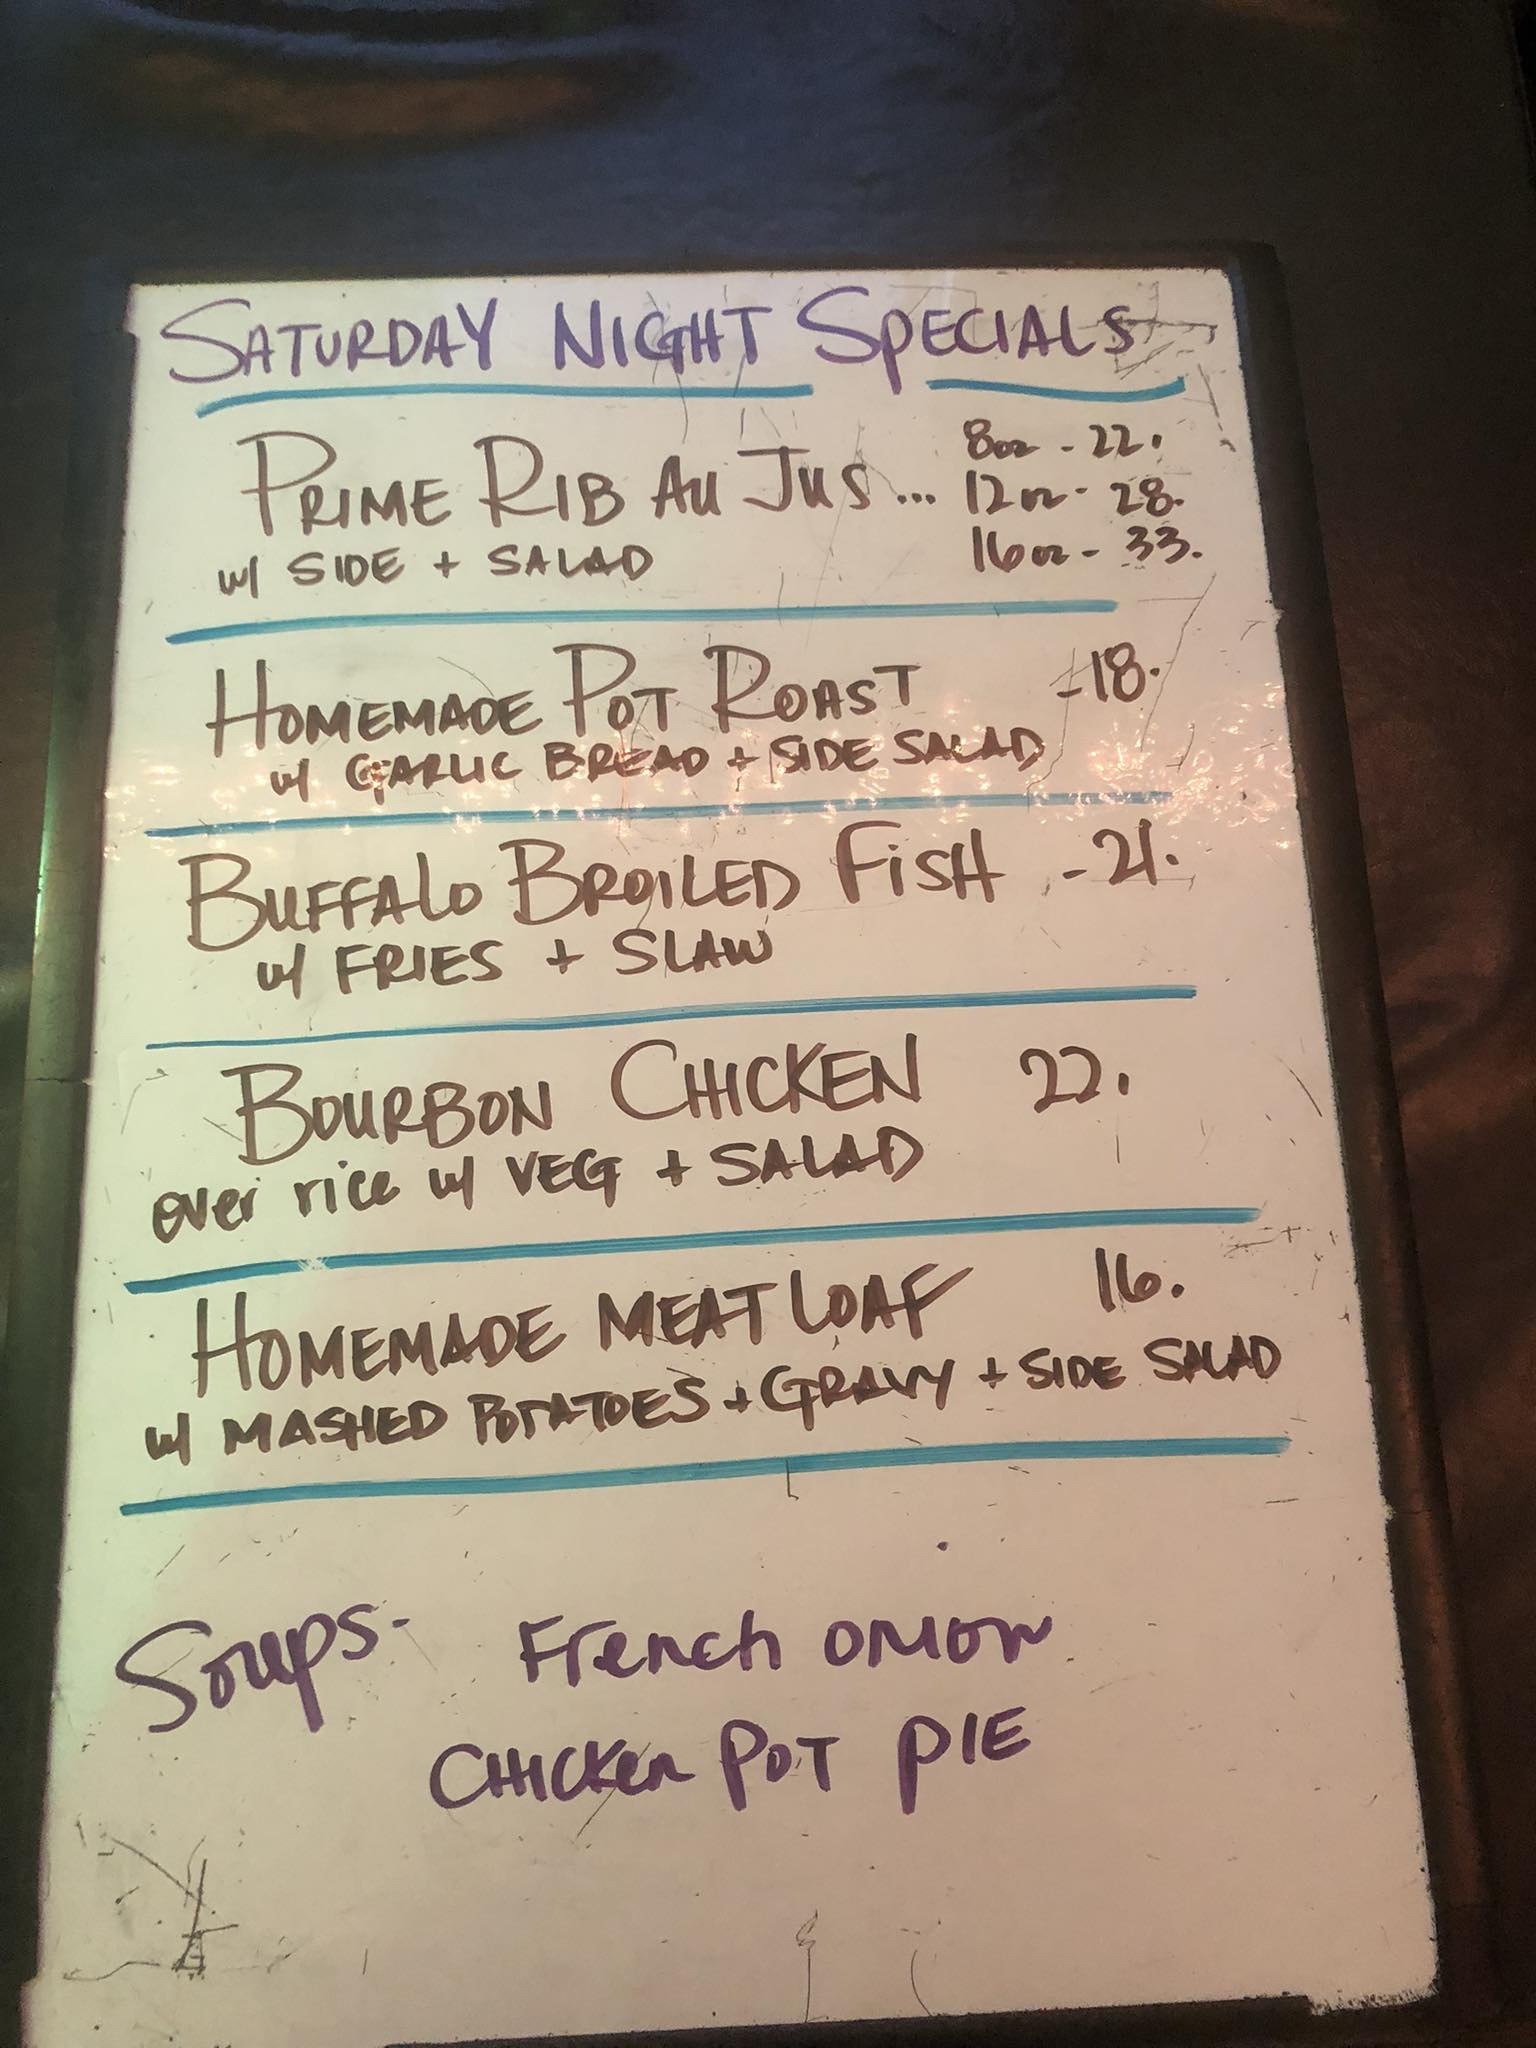 SATURDAY NIGHT SPECIALS
PRIME RIB AU JUS ... 8oz - 22.
12oz - 28.
w/ SIDE + SALAD 16oz - 33.
HOMEMADE POT ROAST - 18.
w/ GARLIC BREAD + SIDE SALAD
BUFFALO BROILED FISH - 21.
w/ FRIES + SLAW
BOURBON CHICKEN 22.
over rice w/ VEG + SALAD
HOMEMADE MEAT LOAF 16.
w/ MASHED POTATOES + GRAVY + SIDE SALAD
Soups - French onion
CHICKen POT PIE